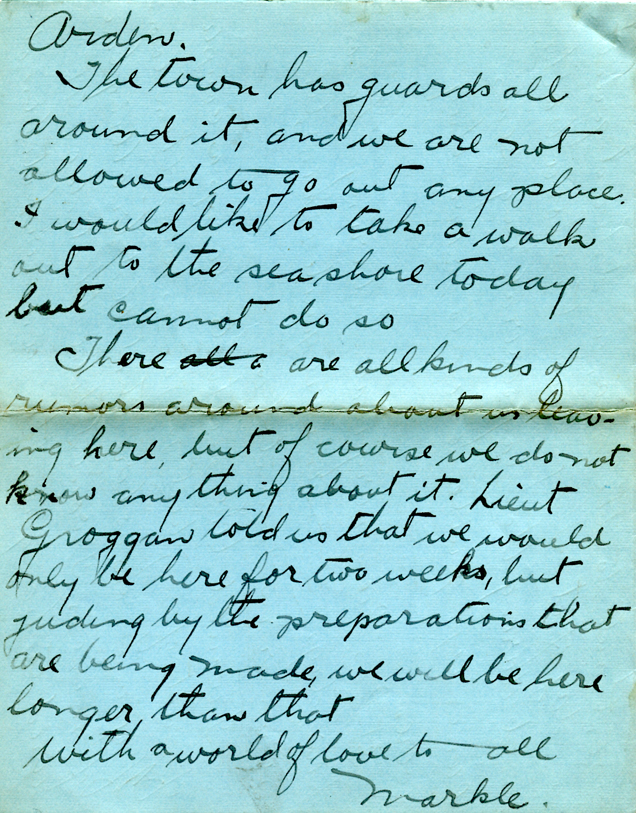 Arden.
The town has guards all
around it, and we are not
allowed to go out any place.
I would like to take a walk
out to the sea shore today
but cannot do so
There all a are all kinds of
rumors around about us leav-
ing here, but of course we do not
know any thing about it. Lieut
Groggan told us that we would
only be here for two weeks, but
juding by the preparations that
are being made, we will be here
longer, than that
with a world of love to all
Markle.